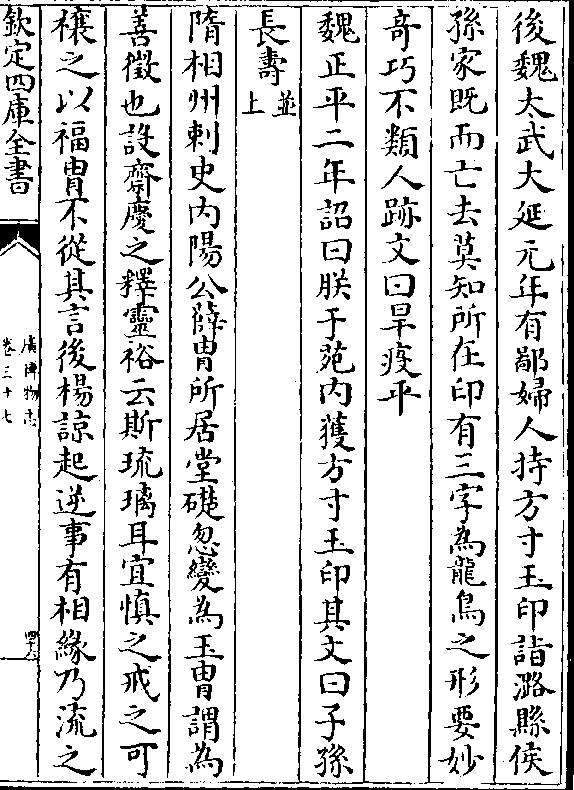 後魏太武大延元年有鄙婦人持方寸玉印詣潞縣侯
孫家既而亡去莫知所在印有三字為龍鳥之形要妙
奇巧不類人跡文曰旱疫平
魏正平二年詔曰朕于苑内獲方寸玉印其文曰子孫
長壽並上
隋相州刺史内陽公薛胄所居堂礎忽變為玉胄謂為
善徵也設齋慶之釋靈裕云斯琉璃耳宜慎之戒之可
禳之以福胄不從其言後楊諒起逆事有相緣乃流之
欽定四庫全書
廣博物志
卷三十七